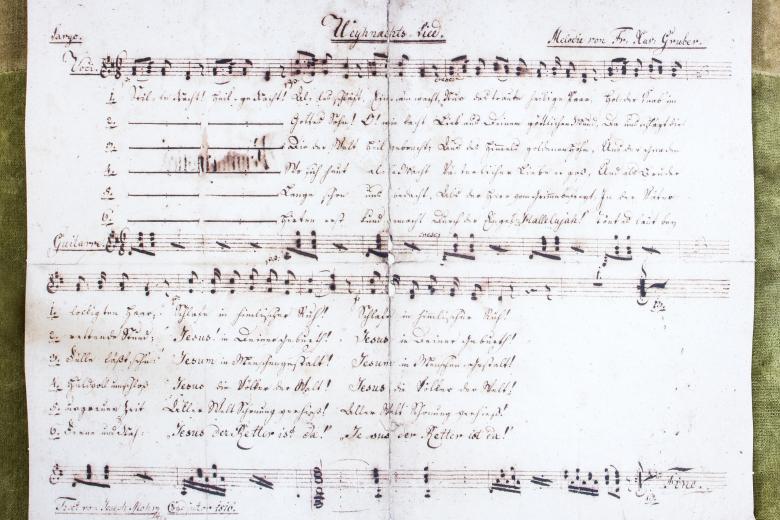 Largo. Weyhnachts-Lied. Melodie von Fr. Xav. Gruber.
Voce.
1. Stille Nacht! Heilige Nacht! Alles schläft, Einsam wacht, Nur das traute heilige Paar, Holder Knab' im
2. Gottes Sohn! O! wie lacht Lieb' aus Deinem göttlichen Mund, Da uns schlägt die
3. Die der Welt Heil gebracht, Aus des Himmels goldenen Höhn, Aus der Gnaden
4. Wo sich heut alle Macht Väterlicher Liebe ergoß, Und als Bruder
5. Lange schon uns bedacht, Als der Herr vom Grimme befreyt, In der Väter
6. Hirten erst kund gemacht Durch der Engel Hallelujah! Tönt es laut bey
Guitarre.
cresc.
1. lockigten Haar; Schlafe in himlischer Ruh! Schlafe in himlischer Ruh!
2. rettende Stund; Jesus! in Deiner Geburth! Jesus in Deiner Geburth!
3. Fülle läßt sehn: Jesum in Menschengestalt! Jesum in Menschengestalt!
4. Huldvoll umschloß Jesus die Völker der Welt! Jesus die Völker der Welt!
5. urgrauer Zeit Aller Welt Schonung verhieß! Aller Welt Schonung verhieß!
6. Ferne und Nah: Jesus der Retter ist da!" Jesus der Retter ist da!"
Fine.
Text von Joseph Mohr, Coadjutor 1816.